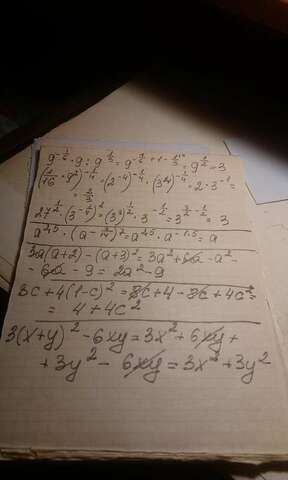 9^{-1/6} · 9 : 9^{1/3} = 9^{-1/6 + 1 - 1/3} = 9^{1/2} = 3
(1/16 · 9²)^{-1/4} = (2^{-4})^{-1/4} · (3^4)^{-1/4} = 2 · 3^{-1} =
= 2/3
27^{1/2} · (3^{-1/4})² = (3³)^{1/2} · 3^{-1/2} = 3^{3/2 - 1/2} = 3
a^{2,5} · (a^{-3/4})² = a^{2,5} · a^{-1,5} = a
3a(a+2) - (a+3)² = 3a² + 6a - a² -
- 6a - 9 = 2a² - 9
8c + 4(1-c)² = 8c + 4 - 8c + 4c² =
= 4 + 4c²
3(x+y)² - 6xy = 3x² + 6xy +
+ 3y² - 6xy = 3x² + 3y²